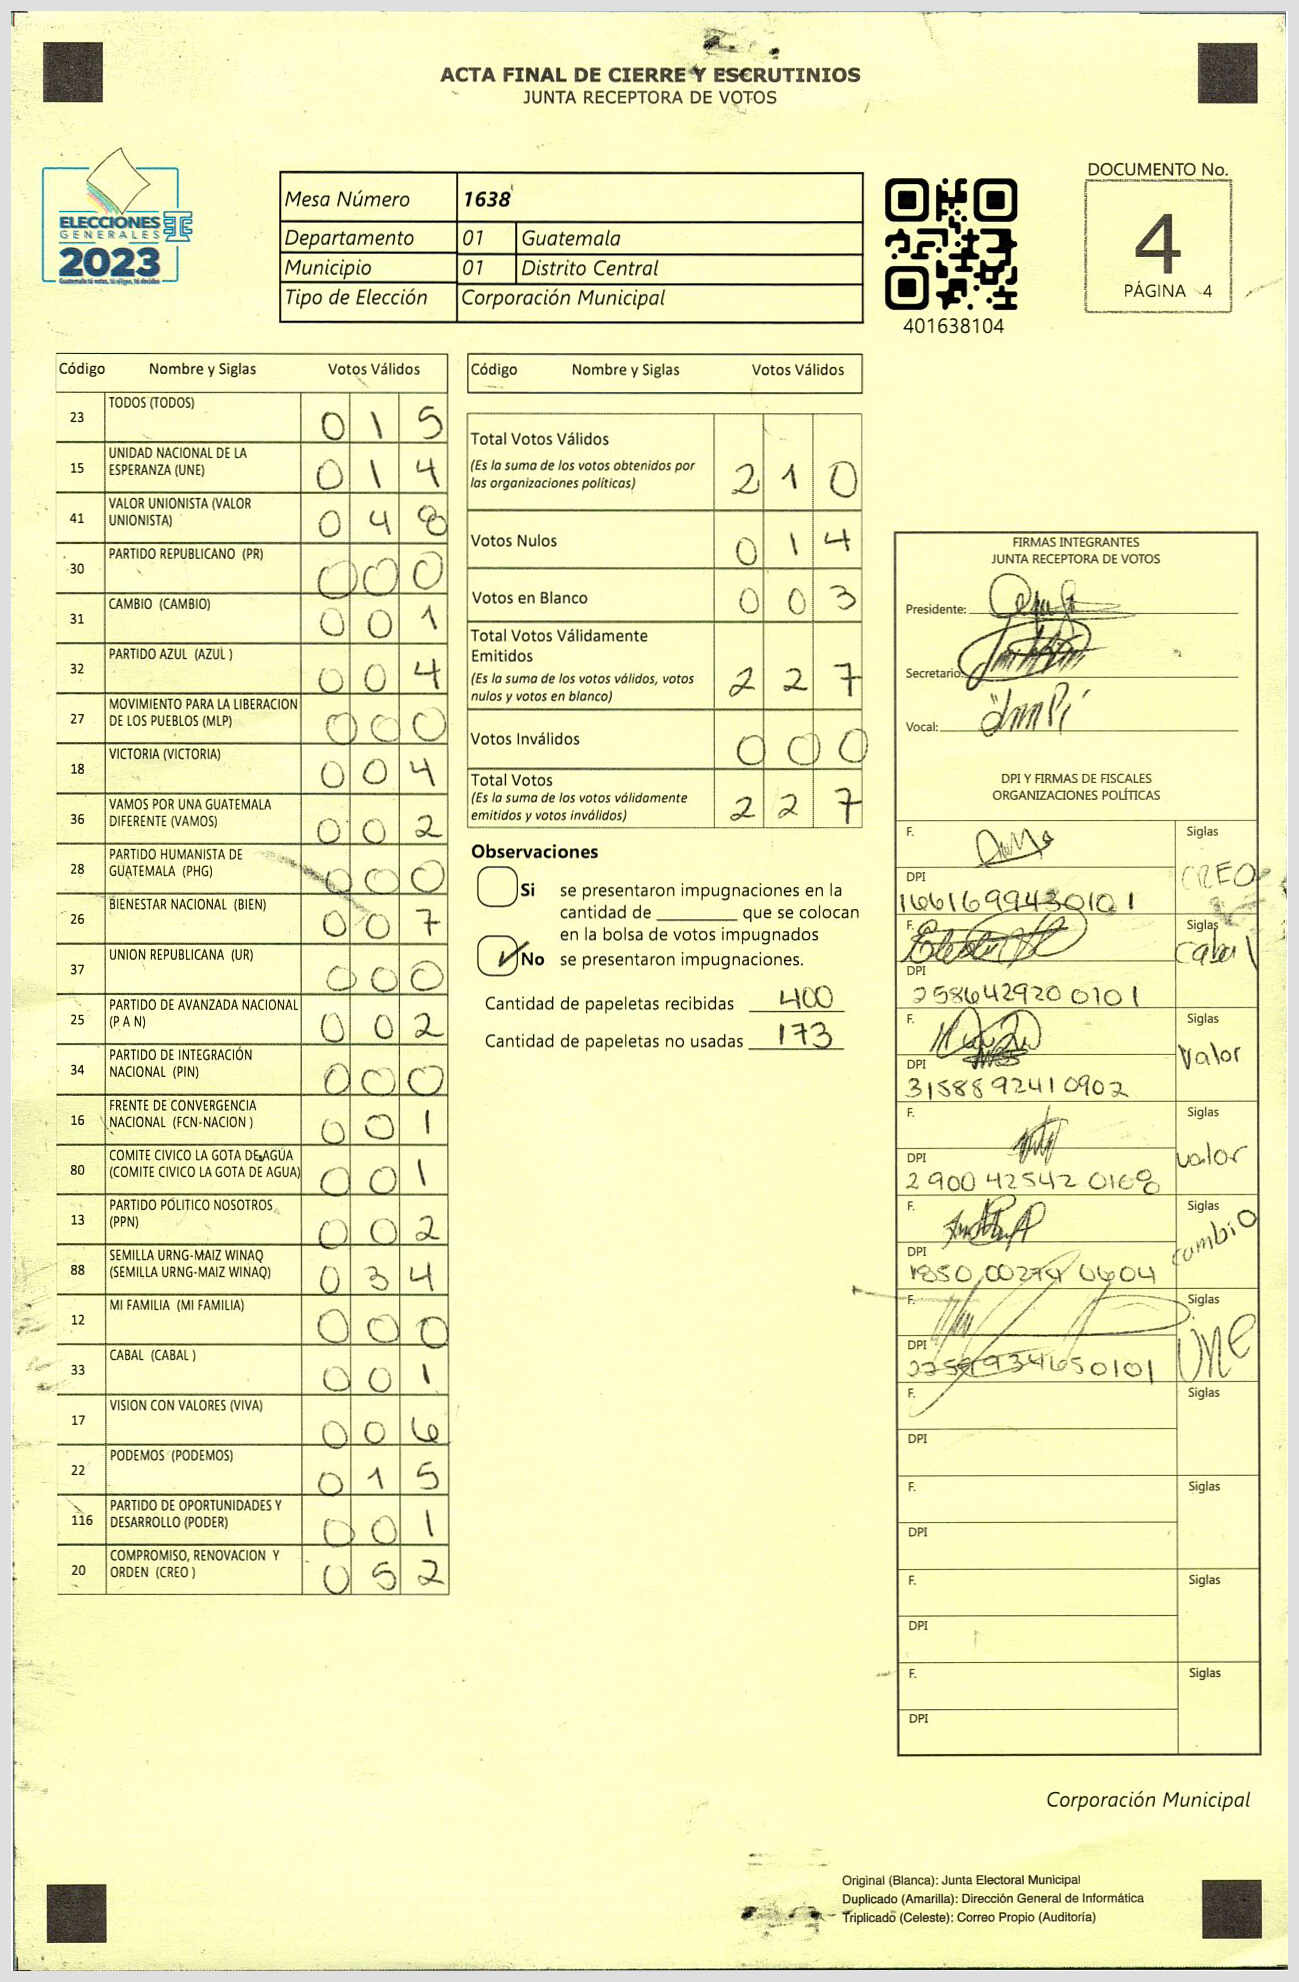 ACTA FINAL DE CIERRE Y ESCRUTINIOS
JUNTA RECEPTORA DE VOTOS
ELECCIONES
GENERALES
2023
Mesa Número 1638
Departamento 01 Guatemala
Municipio 01 Distrito Central
Tipo de Elección Corporación Municipal
401638104
DOCUMENTO No.
4
PÁGINA 4
Código Nombre y Siglas Votos Válidos
23 TODOS (TODOS) 0 1 5
15 UNIDAD NACIONAL DE LA
ESPERANZA (UNE) 0 1 4
41 VALOR UNIONISTA (VALOR
UNIONISTA) 0 4 8
30 PARTIDO REPUBLICANO (PR) 0 0 0
31 CAMBIO (CAMBIO) 0 0 1
32 PARTIDO AZUL (AZUL ) 0 0 4
27 MOVIMIENTO PARA LA LIBERACION
DE LOS PUEBLOS (MLP) 0 0 0
18 VICTORIA (VICTORIA) 0 0 4
36 VAMOS POR UNA GUATEMALA
DIFERENTE (VAMOS) 0 0 2
28 PARTIDO HUMANISTA DE
GUATEMALA (PHG) 0 0 0
26 BIENESTAR NACIONAL (BIEN) 0 0 7
37 UNION REPUBLICANA (UR) 0 0 0
25 PARTIDO DE AVANZADA NACIONAL
(P A N) 0 0 2
34 PARTIDO DE INTEGRACIÓN
NACIONAL (PIN) 0 0 0
16 FRENTE DE CONVERGENCIA
NACIONAL (FCN-NACION ) 0 0 1
80 COMITE CIVICO LA GOTA DE AGÚA
(COMITE CIVICO LA GOTA DE AGUA) 0 0 1
13 PARTIDO POLITICO NOSOTROS
(PPN) 0 0 2
88 SEMILLA URNG-MAIZ WINAQ
(SEMILLA URNG-MAIZ WINAQ) 0 3 4
12 MI FAMILIA (MI FAMILIA) 0 0 0
33 CABAL (CABAL ) 0 0 1
17 VISION CON VALORES (VIVA) 0 0 6
22 PODEMOS (PODEMOS) 0 1 5
116 PARTIDO DE OPORTUNIDADES Y
DESARROLLO (PODER) 0 0 1
20 COMPROMISO, RENOVACION Y
ORDEN (CREO ) 0 5 2
Código Nombre y Siglas Votos Válidos
Total Votos Válidos
(Es la suma de los votos obtenidos por
las organizaciones políticas) 2 1 0
Votos Nulos 0 1 4
Votos en Blanco 0 0 3
Total Votos Válidamente
Emitidos
(Es la suma de los votos válidos, votos
nulos y votos en blanco) 2 2 7
Votos Inválidos 0 0 0
Total Votos
(Es la suma de los votos válidamente
emitidos y votos inválidos) 2 2 7
Observaciones
Si se presentaron impugnaciones en la
cantidad de ________ que se colocan
en la bolsa de votos impugnados
No se presentaron impugnaciones.
Cantidad de papeletas recibidas 400
Cantidad de papeletas no usadas 173
FIRMAS INTEGRANTES
JUNTA RECEPTORA DE VOTOS
Presidente:
Secretario:
Vocal:
DPI Y FIRMAS DE FISCALES
ORGANIZACIONES POLÍTICAS
F. Siglas
CREO
DPI
1661699430101
F. Siglas
Cabal
DPI
2586429200101
F. Siglas
Valor
DPI
3158892410902
F. Siglas
valor
DPI
F. Siglas
cambio
DPI
F. Siglas
UNE
DPI
F. Siglas
DPI
F. Siglas
DPI
F. Siglas
DPI
F. Siglas
DPI
Corporación Municipal
Original (Blanca): Junta Electoral Municipal
Duplicado (Amarilla): Dirección General de Informática
Triplicado (Celeste): Correo Propio (Auditoría)